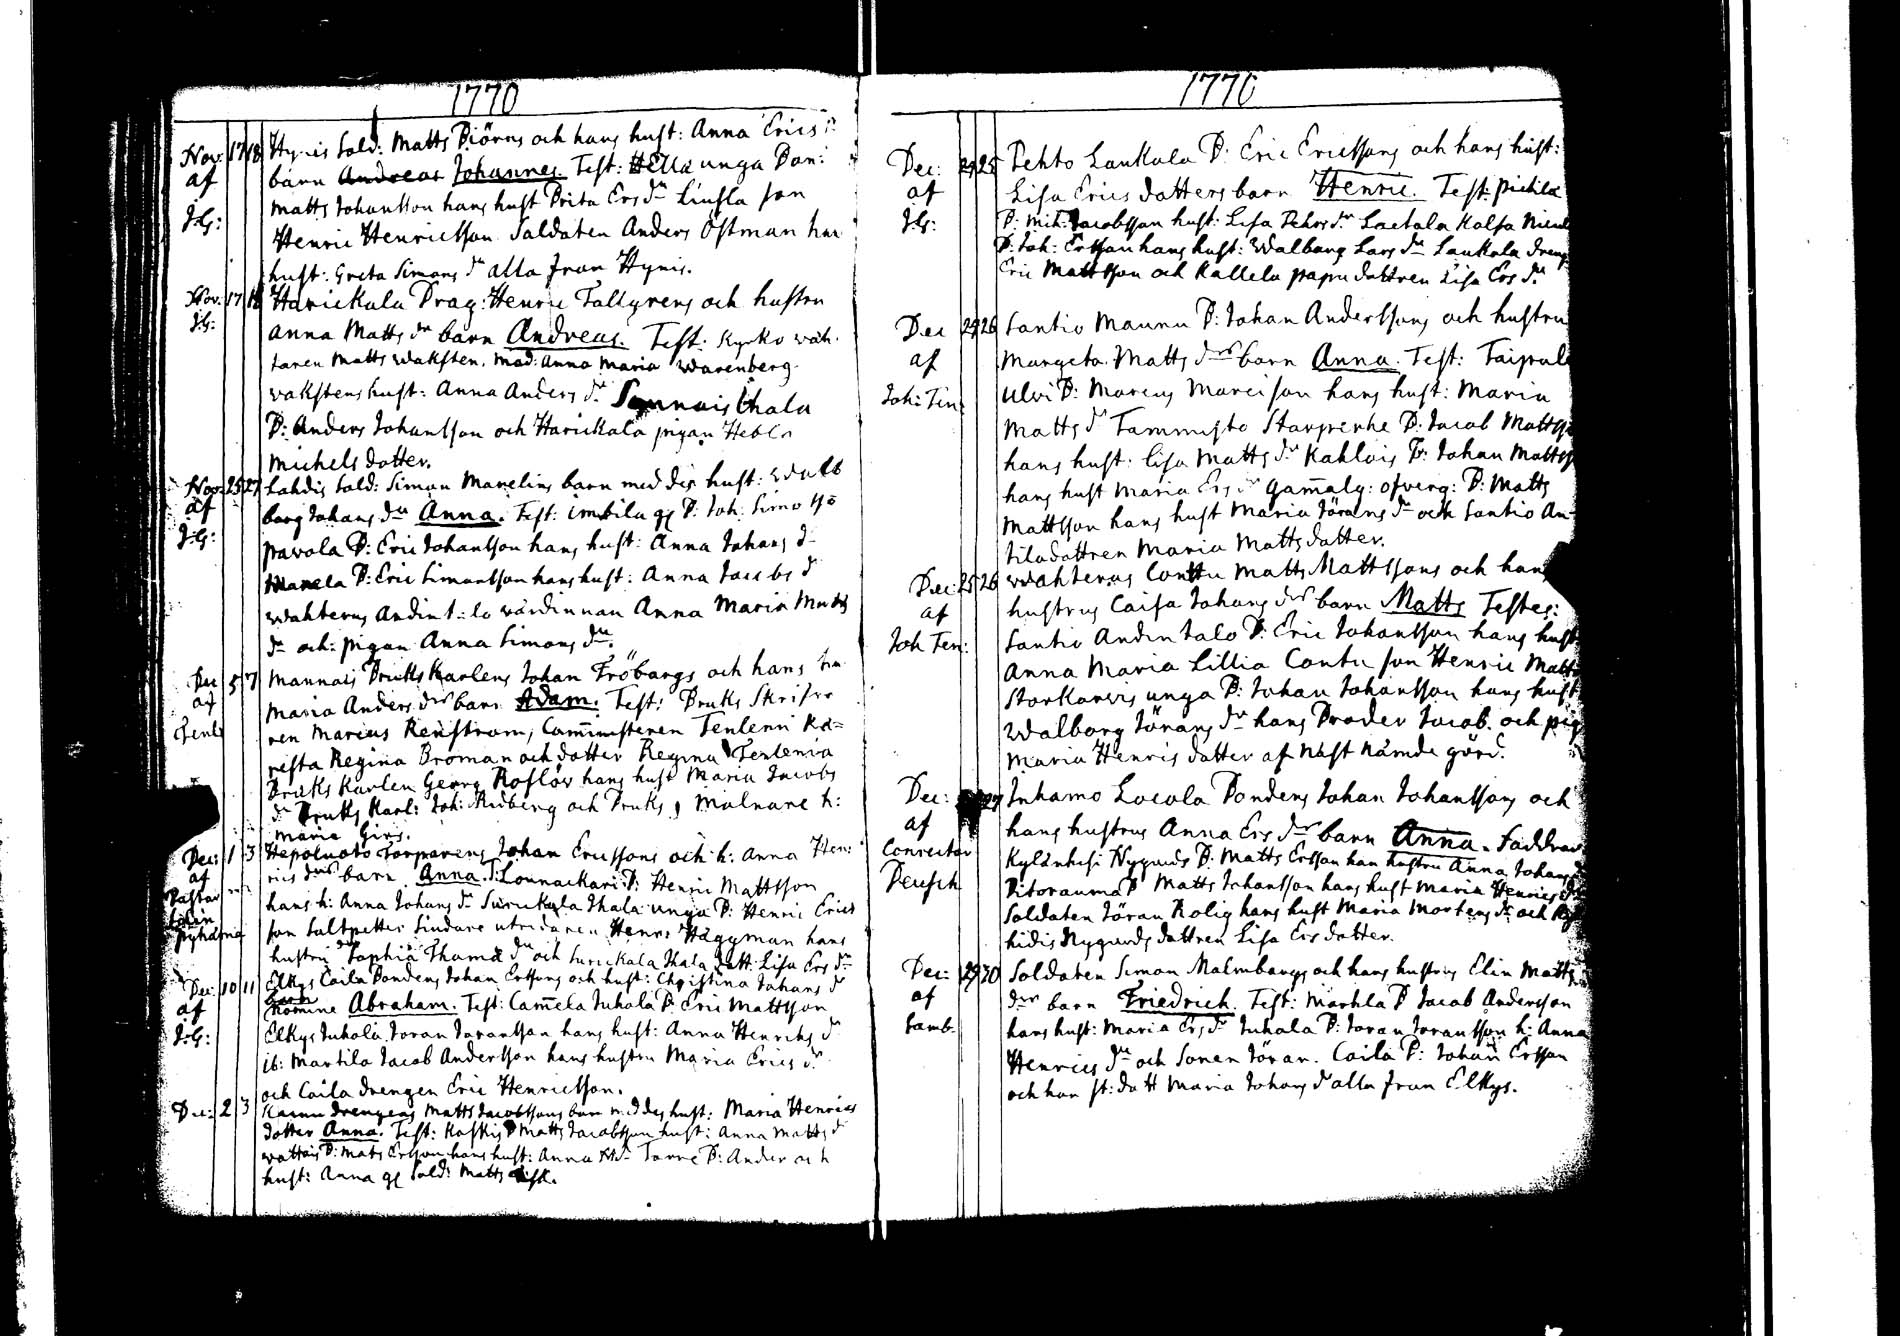 1770
Nov. 17 18 Hynis Sold: Matts Biörns och hans hust: Anna Erics
af barn Andreas Johannes. Test: Hella unga Bon:
J:G: Matts Johansson hans hust Brita Ers dr Liusla son
Henric Henricsson Soldaten Anders Östman
hust: Greta Simons dr alla från Hynis.
Nov. 17 18 Harickala Drag: Henric Tallgrens och hustru
J:G: Anna Matts dr barn Andreas. Test. Kyrko wäk-
taren Matts waksten. Mad: Anna Maria Warenberg
wakstens hust: Anna Anders dr Sonnais Ihala
B: Anders Johansson och Harickala pigan Hebla
Michels dotter.
Nov. 25 27 Lahdis Sold: Simon Manelius barn med des hust: Walb
af borg Johans dr Anna. Test: imbila gl B: Joh: Simo
J:G: pavola B: Eric Johansson hans hust: Anna Johans d
Manela B: Eric Simonsson hans hust: Anna Jacobs d
Wahterus Andin t:lo wärdinnan Anna Maria Matts
dr och: pigan Anna Simons dr.
Dec 5 7 Mannais Bruks Karlens Johan Fröbergs och hans
af Maria Anders drs barn Adam. Test: Bruks Skrifva
Tenl ren Marcus Renström, Comministeren Tenleni Kä=
resta Regina Broman och dotter Regina Tenlenia
Bruks Karlen Georg Roslöv hans hust Maria Jacobs
dr Bruks Karl: Joh: Ridberg och Bruks Molnare h:
Maria Girs.
Dec: 1 3 Hepoluoto Torparens Johan Ericssons och h: Anna Hen:
af rics drs barn Anna. Lounaickari B: Henric Mattsson
Pastor hans h: Anna Johans dr Surickala Ihala unga B: Henric Erics
son Saltpetter Siudare utridaren Henr: Häggman hans
hustru Sophia Thomæ dr och Surickala Ihala dott: Lisa Ers dr
Dec: 10 11 Elkys Caila Bondens Johan Erssons och hust: Christina Johans d
barn
af nomine Abraham. Test: Camela Juhola B: Eric Mattsson
J:G: Elkys Juhola Joran Joransson hans hust: Anna Henrichs d
ib: Martila Jacob Andersson hans hustru Maria Erics dr
och Caila drengen Eric Henricsson.
Dec: 2 3 Kaunu drengens Matts Jacobssons barn med des hust: Maria Henrics
dotter Anna. Test: Kaskis B Matts Jacobsson hust: Anna Matts d
wattais B: Mats Ersson hans hust: Anna dr Tanne B: Ander och
hust: Anna gl Sold: Matts
1770
Dec: 24 25 Pehto Laukola B: Eric Ericssons och hans hust:
af Lisa Erics dotters barn Henric. Test: pietila
J:G: B: Mik: Jacobsson hust: Lisa Pehrs dr Lactala Kalsa
B: Joh: Ersson hans hust: Walborg Lars dr Laukola dreng
Eric Mattsson och Kallela papu dottren Lisa Ers dr
Dec 24 26 Santio Maunu B: Johan Anderssons och hustru
af Margeta Matts drs barn Anna. Test: Taipale
Joh: Ten: Ulvi B: Marcus Marcisson hans hust: Maria
Matts dr Tammisto Storprenke B: Jacob Mattss
hans hust: Lisa Matts dr Kahlois B: Johan Matts
hans hust Maria Ers dr Gamalg: ofverg: B: Matts
Mattsson hans hust Maria Jörans dr och Santio An-
tila dottren Maria Matts dotter.
Dec: 25 26 Wahterus Conttu Matts Mattssons och hans
af hustrus Caisa Johans drs barn Matts Testes:
Joh Ten: Santio Andin talo B: Eric Johansson hans hust
Anna Maria Lillia Contu son Henric Matts
Storkorvis unga B: Johan Johansson hans hust
Walborg Jörans dr hans Broder Jacob. och pig
Maria Henris dotter af näst nämde gård.
Dec: 27 Inhamo Locola Bondens Johan Johanssons och
af hans hustrus Anna Ers drs barn Anna. Faddrar
Conrector Kylänkesi Nyguds B: Matts Ersson han hustru Anna Johans d
Deusch Pitorauma B Matts Johansson hans hust Maria Henrics dr
Soldaten Jöran Rolig hans hust Maria Mortens dr och
hidis Nyguds dottren Lisa Ers dotter.
Dec: 29 30 Soldaten Simon Malmbergs och hans hustrus Elin Matts
af drs barn Friedrich. Test: Markla B Jacob Andersson
Samb. hans hust: Maria Ers dr Juhala B: Joran Joransson h: Anna
Henrics dr och Sonen Jöran. Caila B: Johan Ersson
och han st: dott Maria Johans dr alla från Elkys.